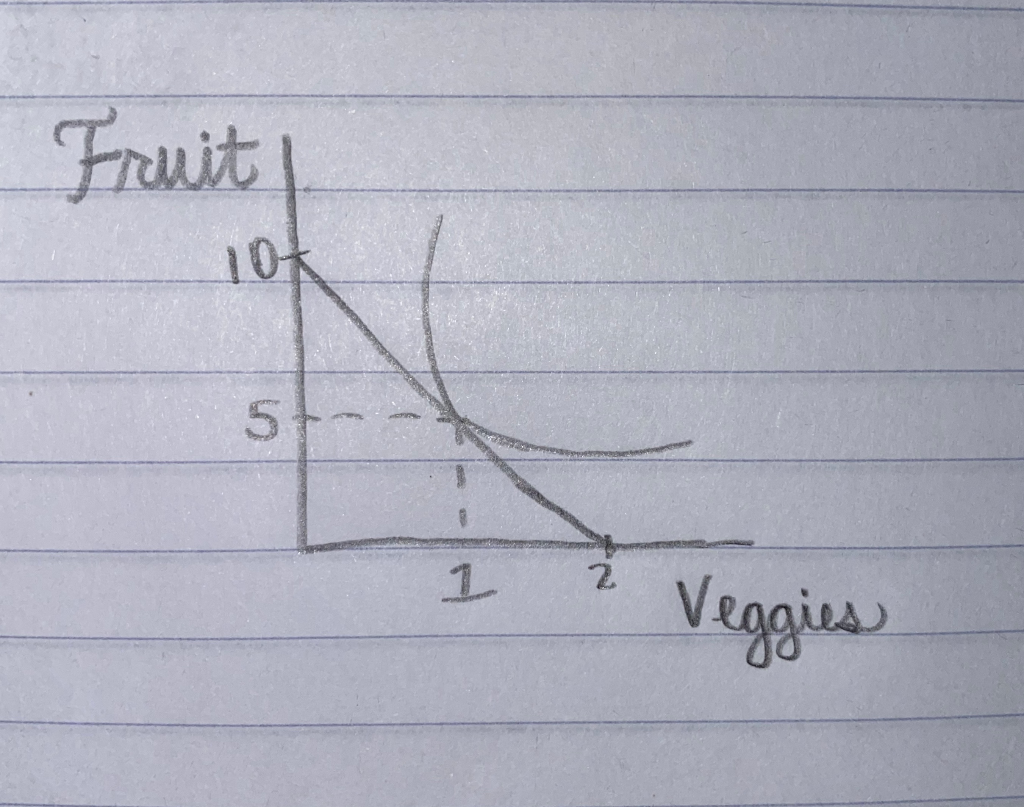 Fruit
10
5
1
2
Veggies